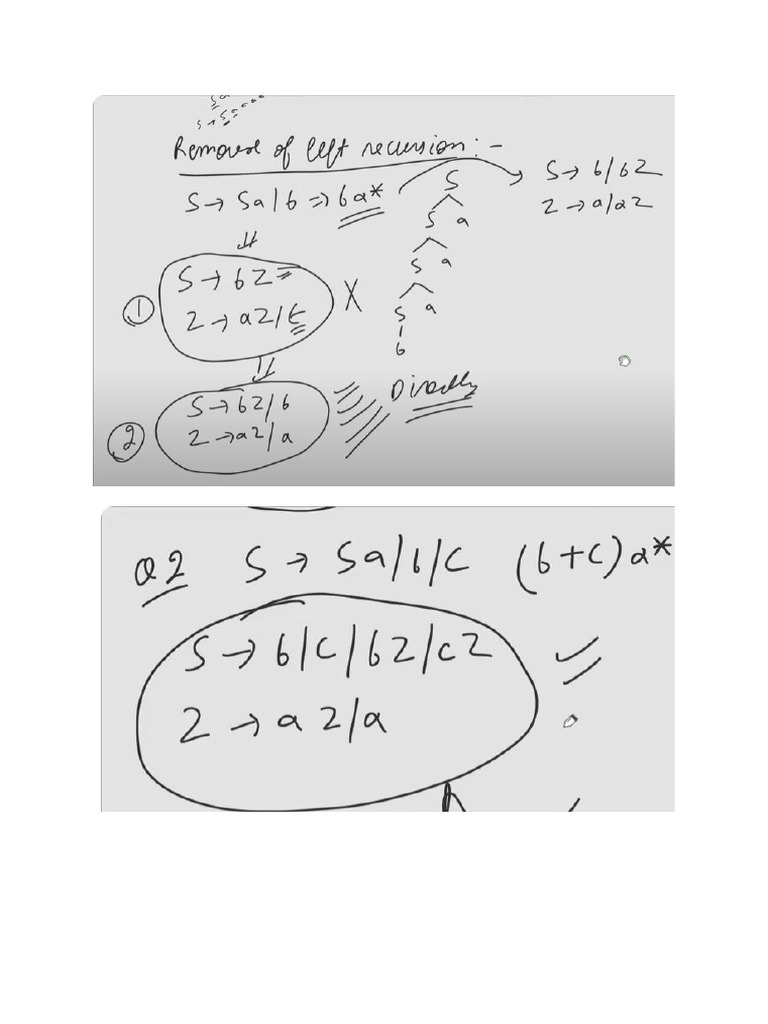 Sa
S→Saaaa
Removal of left recursion:-
S→Sa/b⇒ba*
S→b/bZ
Z→a/aZ
S
S a
S a
S a
b
⇓
① S→bZ
Z→aZ/ε X
⇓
② S→bZ/b
Z→aZ/a
Directly
Q2 S→Sa/b/c (b+c)a*
S→b/c/bZ/cZ
Z→aZ/a